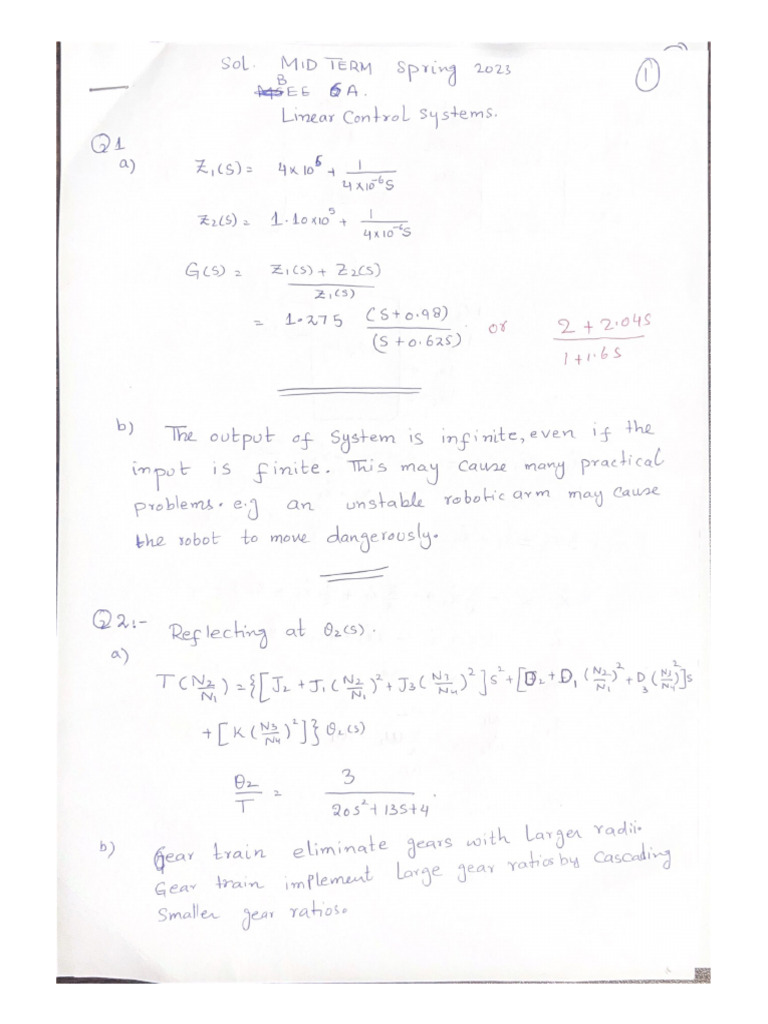 Sol. MID TERM Spring 2023
①
BEE 6A.
Linear Control Systems.
Q1
a) Z₁(S) = 4×10⁶ + 1/(4×10⁻⁶S)
Z₂(S) = 1.10×10⁵ + 1/(4×10⁻⁶S)
G(S) = (Z₁(S) + Z₂(S))/Z₁(S)
= 1.275 (S+0.98)/(S+0.625) or (2 + 2.04S)/(1+1.6S)
b) The output of System is infinite, even if the
input is finite. This may cause many practical
problems. e.g an unstable robotic arm may cause
the robot to move dangerously.
Q2:- Reflecting at θ₂(s).
a)
T(N₂/N₁) = {[J₂ + J₁(N₂/N₁)² + J₃(N₃/N₄)²]S² + [D₂ + D₁(N₂/N₁)² + D₃(N₃/N₄)²]s
+ [K(N₃/N₄)²]} θ₂(s)
θ₂/T = 3/(20s² + 13s + 4).
b) Gear train eliminate gears with Larger radii.
Gear train implement Large gear ratios by Cascading
Smaller gear ratios.